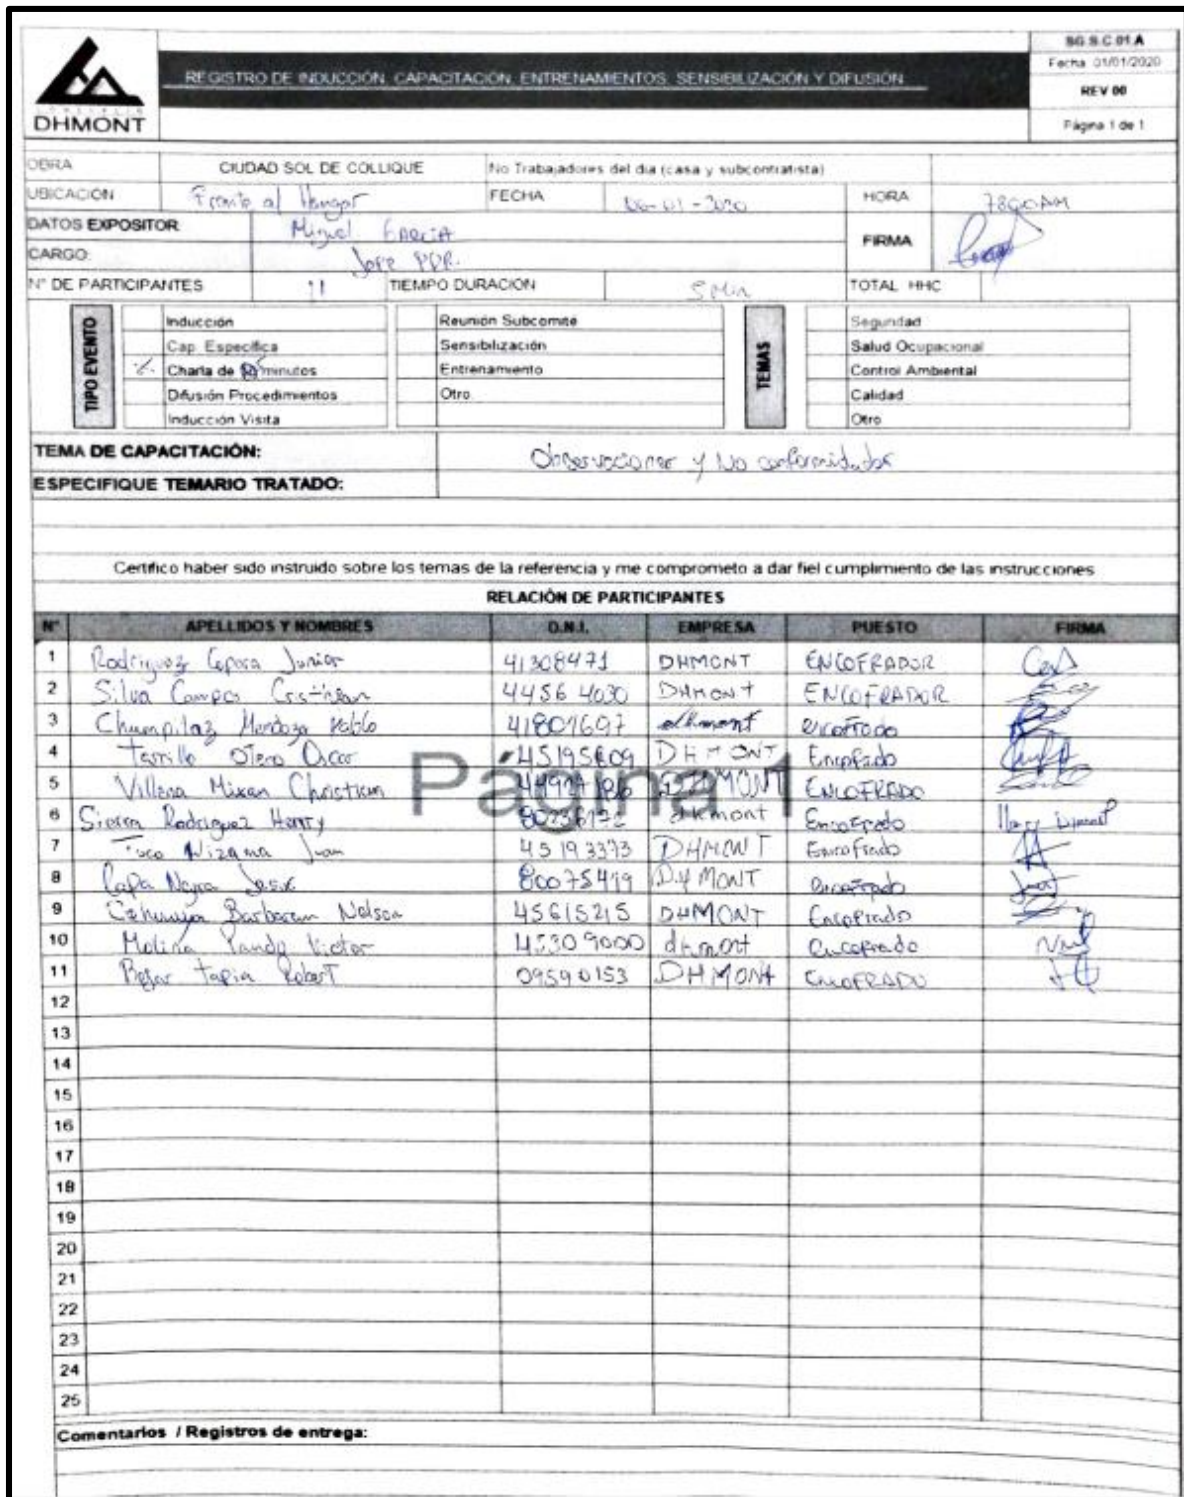 SG.S.C.01.A
Fecha: 01/01/2020
REGISTRO DE INDUCCIÓN, CAPACITACIÓN, ENTRENAMIENTOS, SENSIBILIZACIÓN Y DIFUSIÓN
REV 00
DHMONT
Página 1 de 1
OBRA CIUDAD SOL DE COLLIQUE No Trabajadores del dia (casa y subcontratista)
UBICACIÓN Frente al Hangar FECHA 06-01-2020 HORA
DATOS EXPOSITOR Miguel GARCIA FIRMA
CARGO: PDR.
N° DE PARTICIPANTES 11 TIEMPO DURACIÓN 5 Min TOTAL HHC
TIPO EVENTO
Inducción Reunión Subcomité
Cap. Especifica Sensibilización
Charla de minutos Entrenamiento
Difusión Procedimientos Otro
Inducción Visita
TEMAS
Seguridad
Salud Ocupacional
Control Ambiental
Calidad
Otro
TEMA DE CAPACITACIÓN: Observaciones y No conformidades
ESPECIFIQUE TEMARIO TRATADO:
Certifico haber sido instruido sobre los temas de la referencia y me comprometo a dar fiel cumplimiento de las instrucciones
RELACIÓN DE PARTICIPANTES
N° APELLIDOS Y NOMBRES D.N.I. EMPRESA PUESTO FIRMA
1 Rodriguez Junior 41308471 DHMONT ENCOFRADOR
2 Silva Campos Cristian 44564030 DHMONT ENCOFRADOR
3 Chumpitaz Mendoza Pablo 41807697 dhmont encofrado
4 Otero Oscar DHMONT Encofrado
5 Villena Christian DHMONT ENCOFRADO
6 Sierra Rodriguez Henry dhmont Encofrado
7 Nizama Juan 45193373 DHMONT Encofrado
8 80075419 DHMONT encofrado
9 Barbaran Nelson 45615215 DHMONT Encofrado
10 Molina Pando Victor dhmont encofrado
11 Tapia Robert 09590153 DHMONT ENCOFRADO
Página 1
12
13
14
15
16
17
18
19
20
21
22
23
24
25
Comentarios / Registros de entrega: